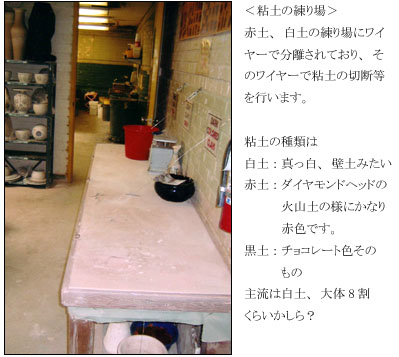 ＜粘土の練り場＞
赤土、白土の練り場にワイ
ヤーで分離されており、そ
のワイヤーで粘土の切断等
を行います。
粘土の種類は
白土：真っ白、壁土みたい
赤土：ダイヤモンドヘッドの
火山土の様にかなり
赤色です。
黒土：チョコレート色その
もの
主流は白土、大体８割
くらいかしら？